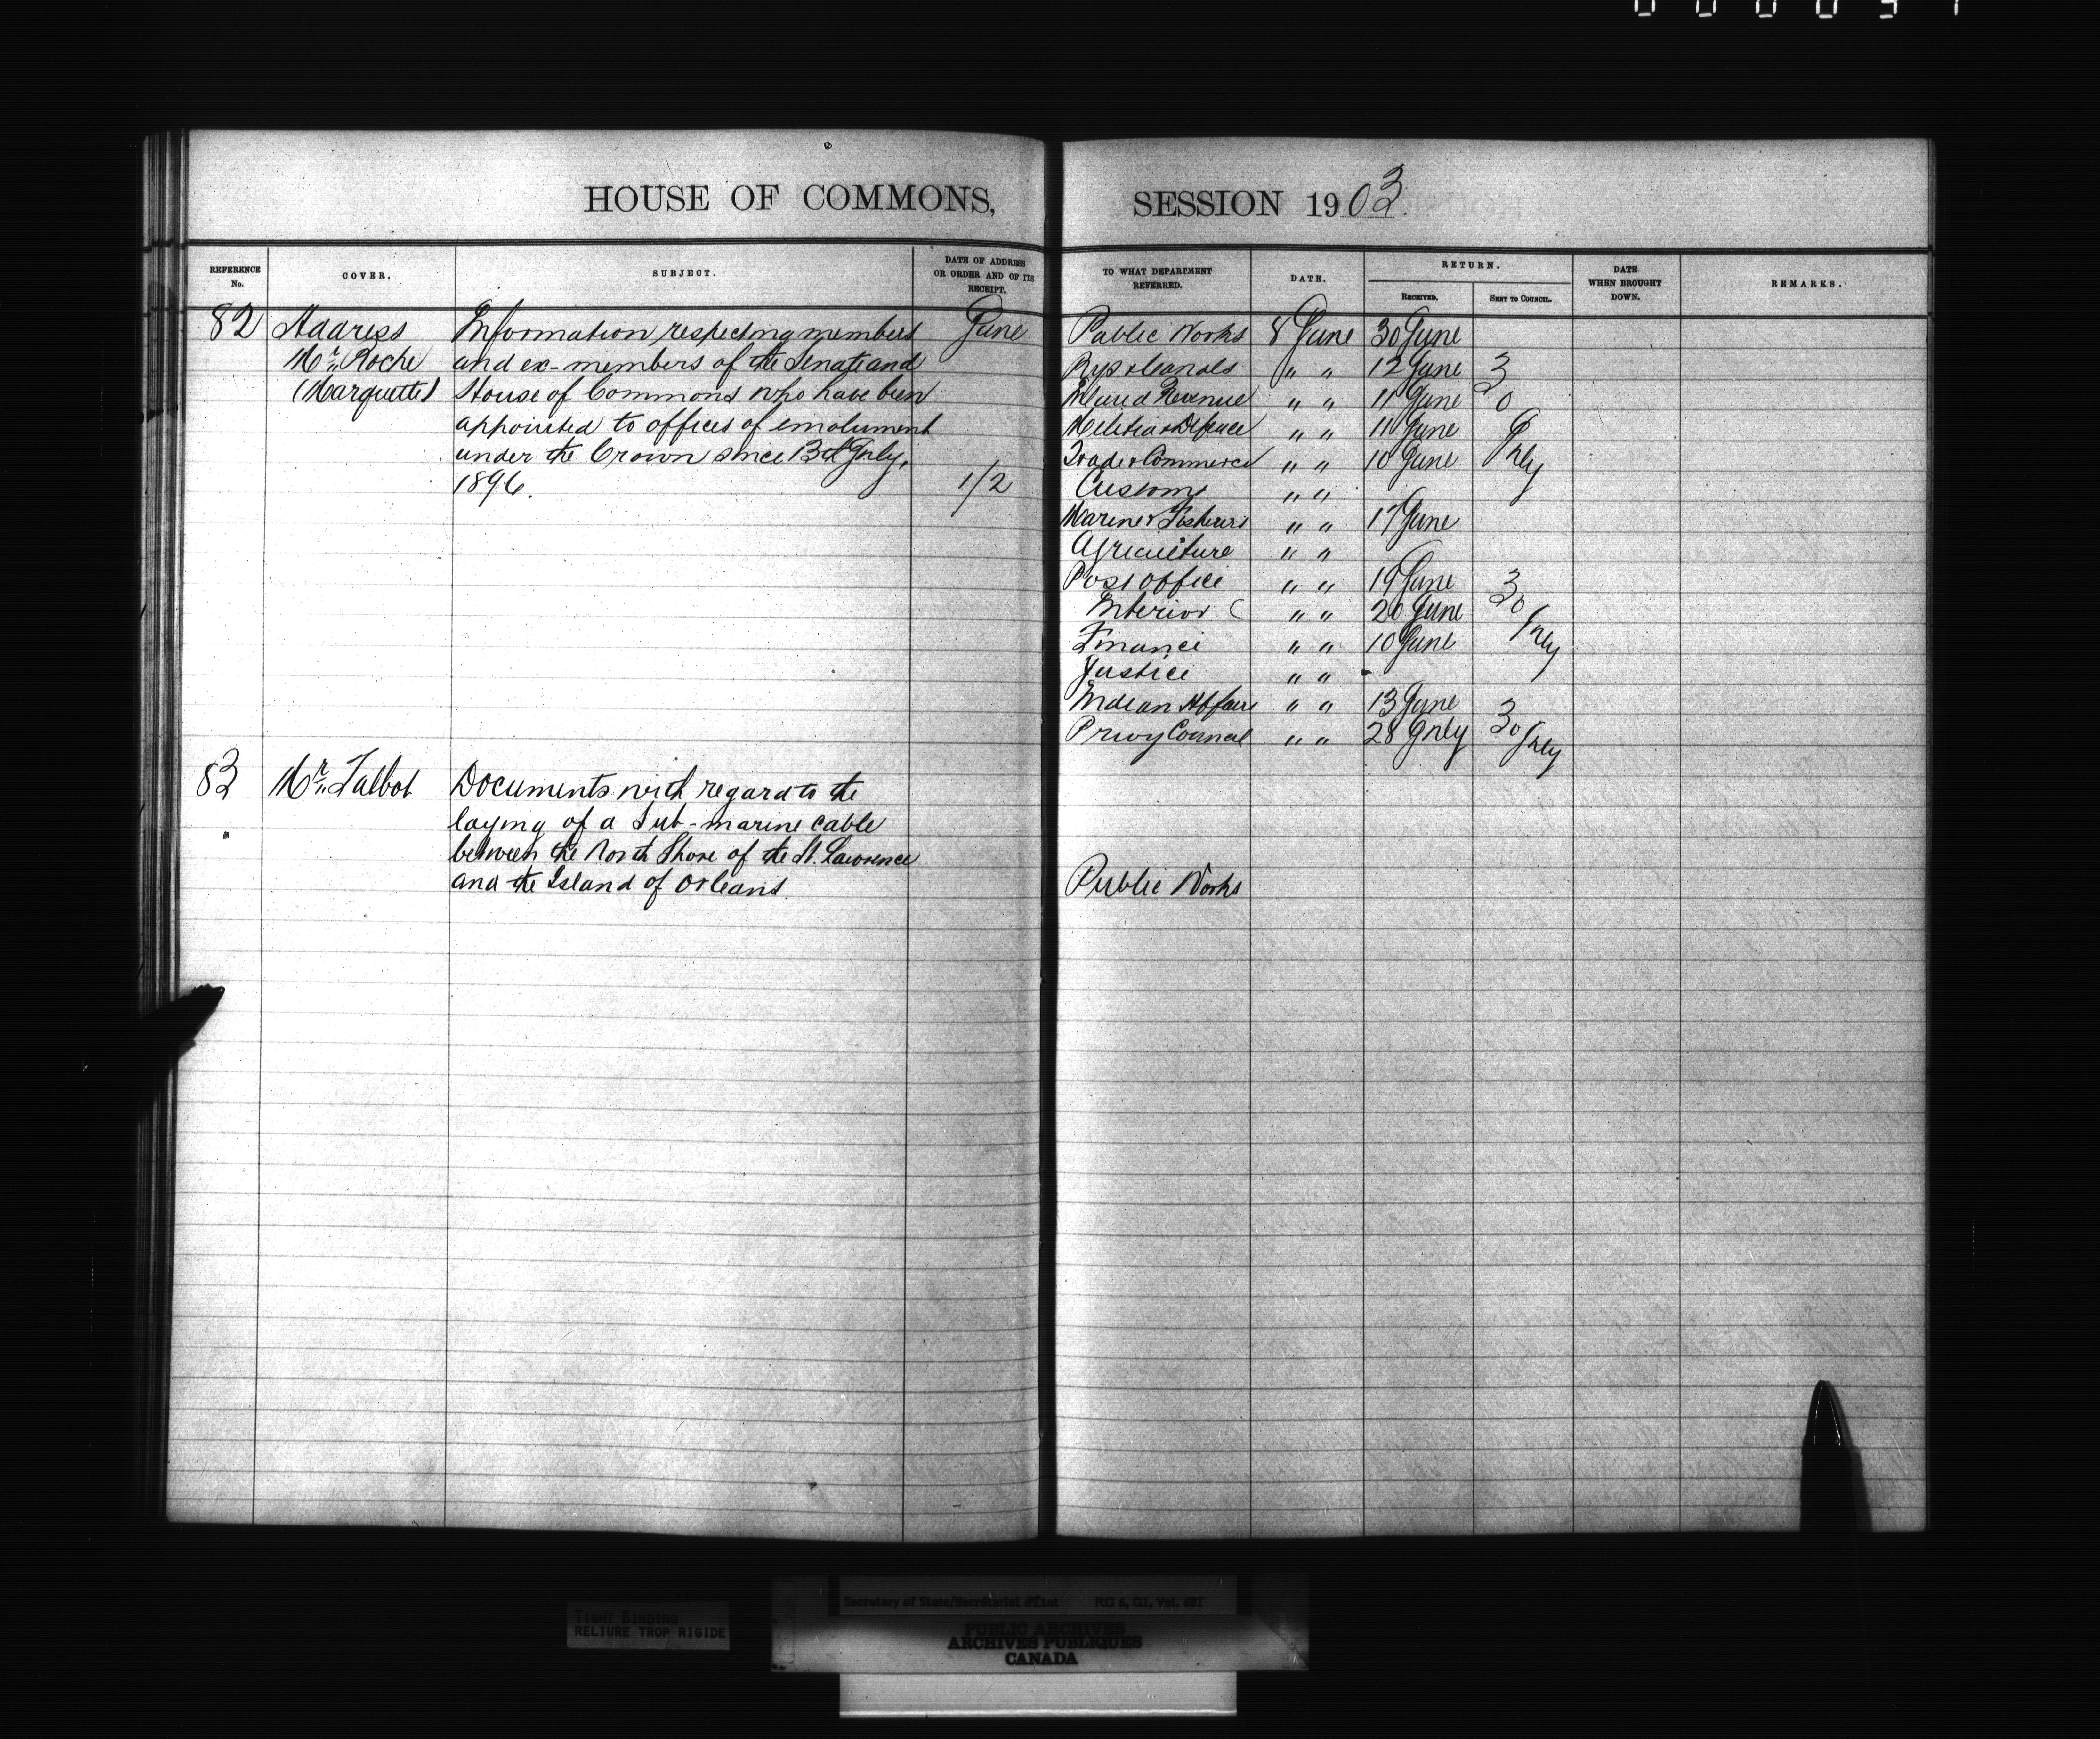 HOUSE OF COMMONS,
REFERENCE No.
COVER.
SUBJECT.
DATE OF ADDRESS OR ORDER AND OF ITS RECEIPT.
82 Address Information respecting members June
Mr. Roche and ex-members of the Senate and
(Marquette) House of Commons who have been
appointed to offices of emolument
under the Crown since 13th July,
1896. 1/2
83 Mr. Talbot Documents with regard to the
laying of a Sub-marine cable
between the North Shore of the St. Lawrence
and the Island of Orleans.
SESSION 1903.
TO WHAT DEPARTMENT REFERRED.
DATE.
RETURN.
RECEIVED.
SENT TO COUNCIL.
DATE WHEN BROUGHT DOWN.
REMARKS.
Public Works 8 June 30 June
Rys & Canals " " 12 June 3
Inland Revenue " " 11 June 0
Militia & Defence " " 11 June
Trade & Commerce " " 10 June July
Customs " "
Marine & Fisheries " " 17 June
Agriculture " "
Post Office " " 19 June 3
Interior " " 20 June 0
Finance " " 10 June July
Justice " " -
Indian Affairs " " 13 June
Privy Council " " 28 July 30 July
Public Works
TIGHT BINDING
RELIURE TROP RIGIDE
Secretary of State/Secrétariat d'État RG 6, G1, Vol.
PUBLIC ARCHIVES
ARCHIVES PUBLIQUES
CANADA